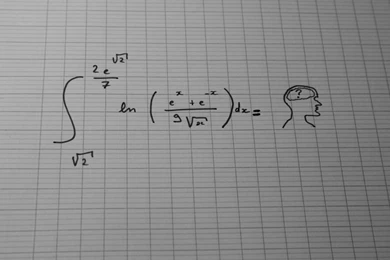 ∫_{√2}^{2e^{√2}/7} ln((e^x + e^{-x})/(9√x)) dx = ?